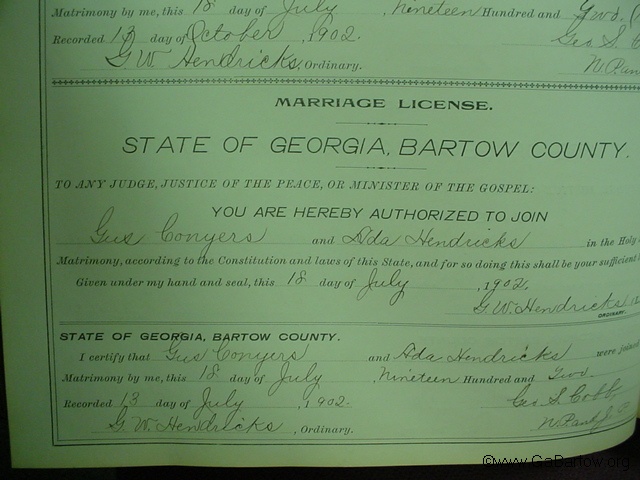 Matrimony by me, this 18 day of July , nineteen Hundred and Two.
Recorded 13 day of October , 1902. Geo S.
G W Hendricks, Ordinary. N.P.
MARRIAGE LICENSE.
STATE OF GEORGIA, BARTOW COUNTY.
TO ANY JUDGE, JUSTICE OF THE PEACE, OR MINISTER OF THE GOSPEL:
YOU ARE HEREBY AUTHORIZED TO JOIN
Gus Conyers and Ada Hendricks in the Holy
Matrimony, according to the Constitution and laws of this State, and for so doing this shall be your sufficient
Given under my hand and seal, this 18 day of July , 1902.
G. W. Hendricks
ORDINARY.
STATE OF GEORGIA, BARTOW COUNTY.
I certify that Gus Conyers and Ada Hendricks were joined
Matrimony by me, this 18 day of July , Nineteen Hundred and Two.
Recorded 13 day of July , 1902. Geo S. Cobb,
G. W. Hendricks , Ordinary. J. P.
©www.GaBartow.org